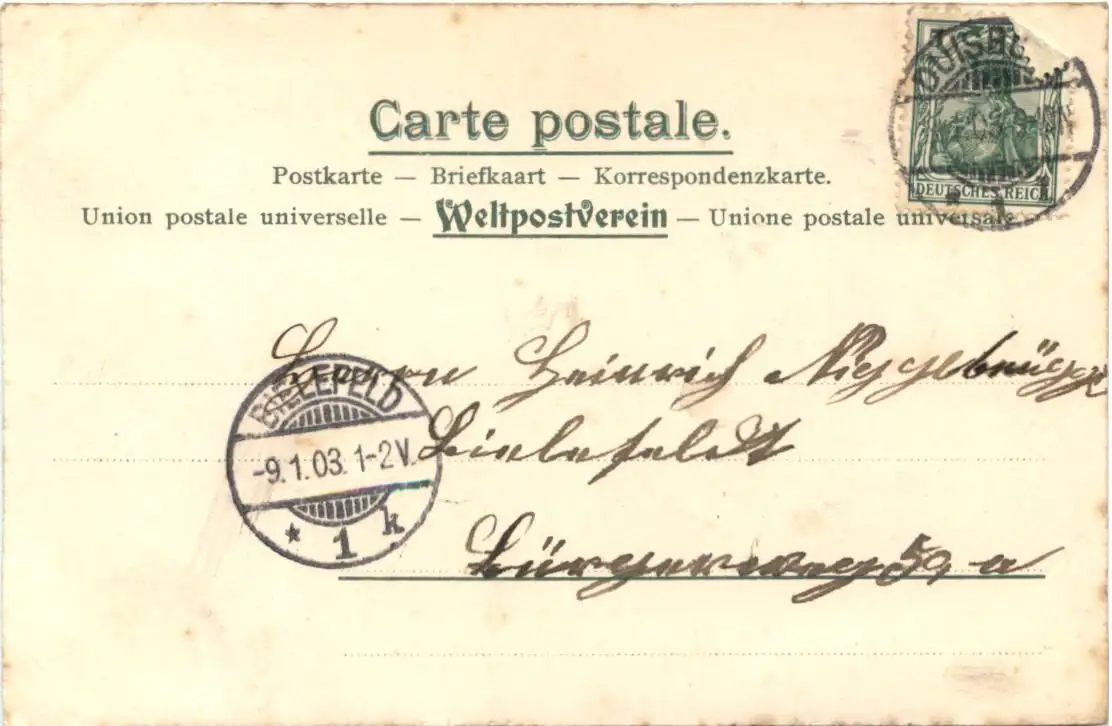 Carte postale.
Postkarte — Briefkaart — Korrespondenzkarte.
Union postale universelle — Weltpostverein — Unione postale universale
DEUTSCHES REICH
1
Herrn Heinrich
BIELEFELD
-9.1.03. 1-2V.
* 1 k
Bielefeldt
Bürgerweg 59 a